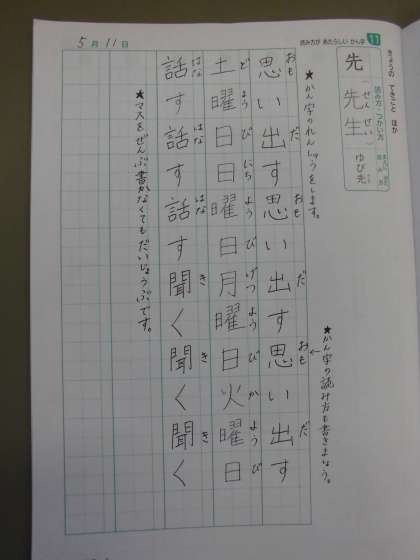 11 読み方が あたらしい かん字
5月11日
きょうの できごと ほか
読み方・つかい方
先 先生(せんせい) ゆび先
★かん字のれんしゅうをします。
★かん字の読み方も書きましょう。
思い出す思い出す思い出す
おも だ おも だ おも だ
土曜日日曜日月曜日火曜日
ど よう び にち よう び げつ よう び か よう び
話す話す話す聞く聞く聞く
はな はな はな き き き
★マスをぜんぶ書かなくてもだいじょうぶです。